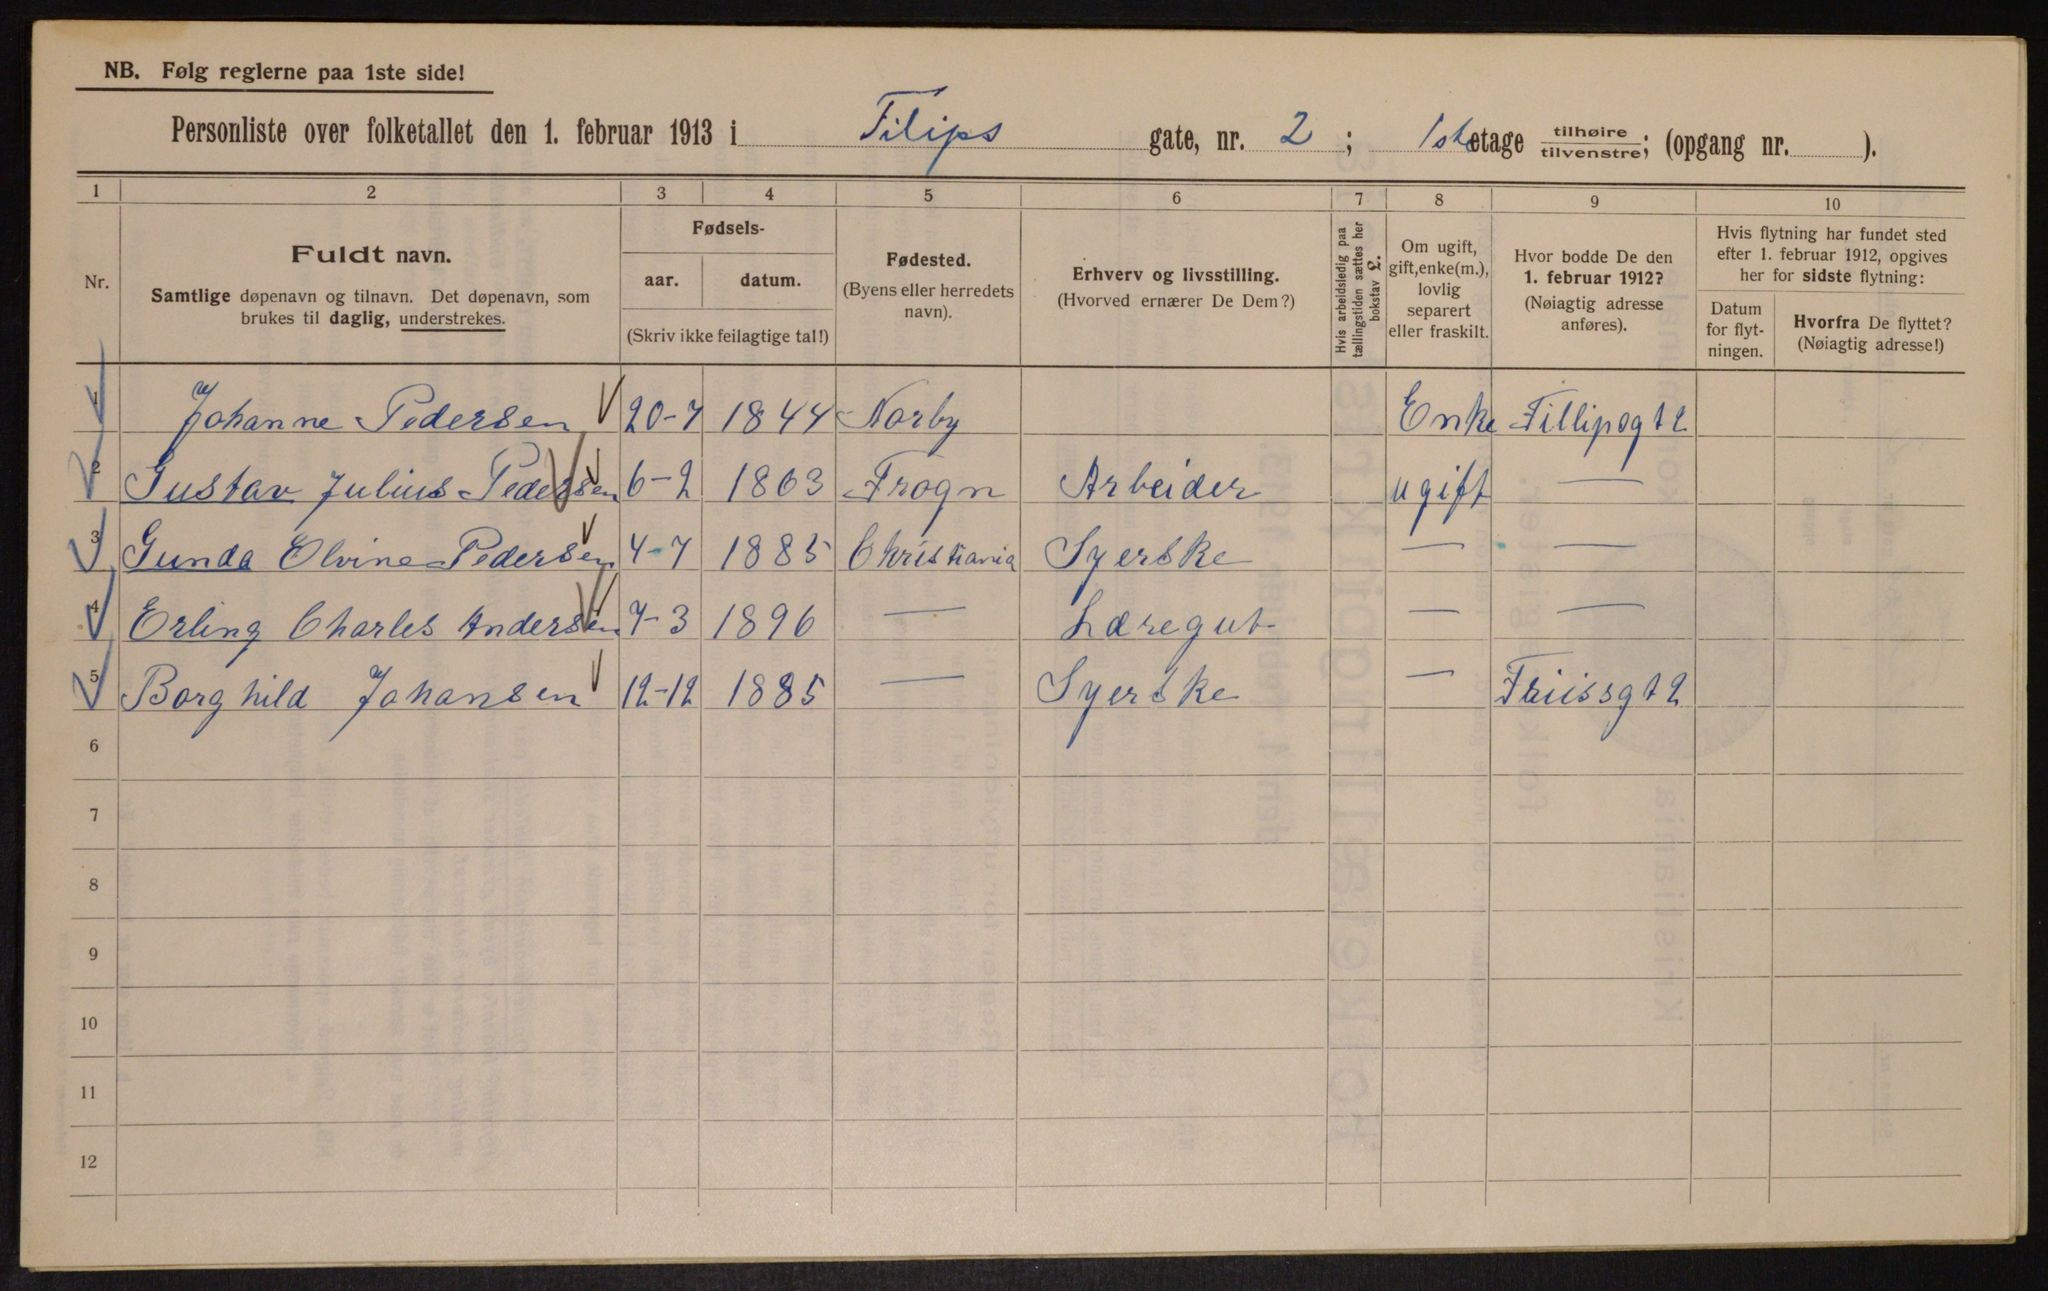 NB. Følg reglerne paa 1ste side!
Personliste over folketallet den 1. februar 1913 i Filips gate, nr. 2 ; 1ste etage tilhøire / tilvenstre; (opgang nr. ).
1 2 3 4 5 6 7 8 9 10
Nr.
Fuldt navn.
Samtlige døpenavn og tilnavn. Det døpenavn, som
brukes til daglig, understrekes.
Fødsels-
aar. datum.
(Skriv ikke feilagtige tal!)
Fødested.
(Byens eller herredets
navn).
Erhverv og livsstilling.
(Hvorved ernærer De Dem?)
Hvis arbeidsledig paa
tællingstiden sættes her
bokstav £.
Om ugift,
gift, enke(m.),
lovlig
separert
eller fraskilt.
Hvor bodde De den
1. februar 1912?
(Nøiagtig adresse
anføres).
Hvis flytning har fundet sted
efter 1. februar 1912, opgives
her for sidste flytning:
Datum
for flyt-
ningen.
Hvorfra De flyttet?
(Nøiagtig adresse!)
1 Johanne Pedersen 20-7 1844 Norby Enke Fillipsgt 2
2 Gustav Julius Pedersen 6-2 1863 Frogn Arbeider ugift —
3 Gunda Olvine Pedersen 4-7 1885 Christiania Syerske — —
4 Erling Charles Andersen 7-3 1896 — Læregut — —
5 Borghild Johansen 12-12 1885 — Syerske — Friisgt 2
6
7
8
9
10
11
12